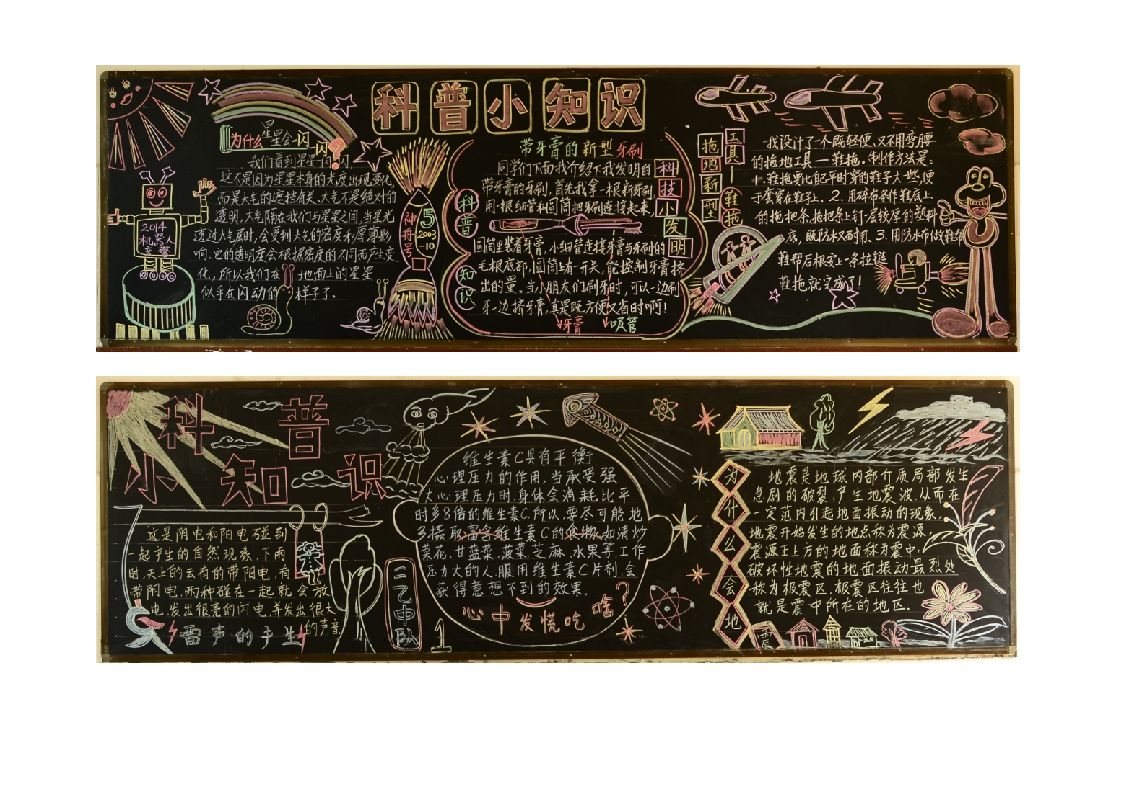 科普小知识
为什么星星会闪闪?
我们看到星星闪闪
这不是因为星星本身的光度出现变化
而是大气的遮挡有关,大气不是绝对的
透明,大气隔在我们与星星之间,当星光
透过大气层时,会受到大气的密度和厚薄影
响.它的透明度会根据密度的不同而产生变
化,所以我们在地面上的星星
似乎在闪动的样子了.
2014
机器人
神舟号
5
2003
10
科普知识
带牙膏的新型牙刷
同学们下面我介绍下我发明的
带牙膏的牙刷,首先我拿一根新牙刷
用一根细管和圆筒把牙刷连接起来
圆筒里装着牙膏,小细管连接牙膏与牙刷的
毛根底部,圆筒上有一开关,能控制牙膏挤
出的量,当小朋友们刷牙时,可以一边刷
牙一边挤牙膏,真是既方便又省时啊!
牙膏 吸管
科技小发明
拖地新型
工具—鞋拖
我设计了一个既轻便,又不用弯腰
的拖地工具—鞋拖.制作方法是:
1.鞋拖要比平时穿的鞋子大些,便
于套穿在鞋上.2.用碎布条作鞋底上
的拖把条,拖把条上钉一层较厚的塑料
底,既防水又耐用.3.用防水布做鞋帮
鞋帮后根安一条拉链
鞋拖就完成了!
科普
小知识
这是阴电和阳电碰到
一起产生的自然现象.下雨
时,天上的云有的带阳电,有
带阴电,两种碰在一起就会放
电,发出很亮的闪电,并发出很大
的声音
雷声的产生
二乙中队
维生素C具有平衡
心理压力的作用,当承受强
大心理压力时,身体会消耗比平
时多8倍的维生素C.所以,要尽可能地
多摄取富含维生素C的食物,如清炒
菜花,甘蓝菜,菠菜,芝麻,水果等工作
压力大的人,服用维生素C片剂,会
获得意想不到的效果.
心中发慌吃啥?
为什么会地
地震是地球内部介质局部发生
急剧的破裂,产生地震波,从而在
一定范内引起地面振动的现象.
地震开始发生的地点称为震源
震源正上方的地面称为震中.
破坏性地震的地面振动最烈处
称为极震区,极震区往往也
就是震中所在的地区.